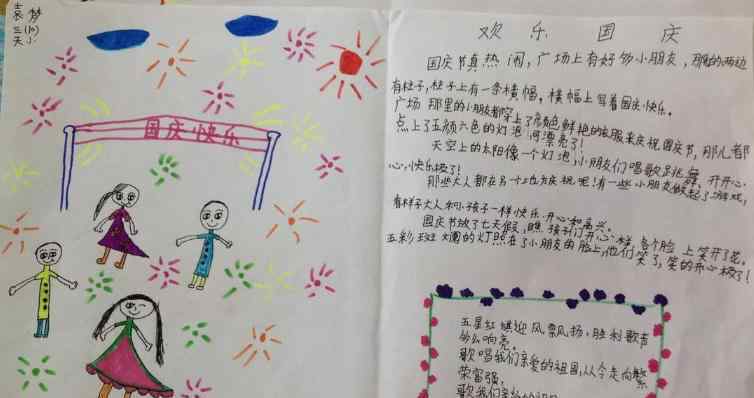 袁梦
三(10)
天小
国庆快乐
欢乐国庆
国庆节真热闹,广场上有好多小朋友,那里的两边
有柱子,柱子上有一条横幅,横幅上写着国庆快乐。
广场那里的小朋友都穿上了颜色鲜艳的衣服来庆祝国庆节,那儿都
点上了五颜六色的灯泡,可漂亮了!
天空上的太阳像一个灯泡,小朋友们唱歌跳舞,开开心
心,快乐极了!
那些大人都在另个地方庆祝呢!有一些小朋友做起了游戏,
看样子大人和小孩子一样快乐、开心和高兴。
国庆节放了七天假,瞧,孩子们开心样,各个脸上笑开了花。
五彩斑斓的灯照在了小朋友的脸上,他们笑了,笑的开心极了!
五星红旗迎风飘扬,胜利歌声
多么响亮。
歌唱我们亲爱的祖国,从今走向繁
荣富强。